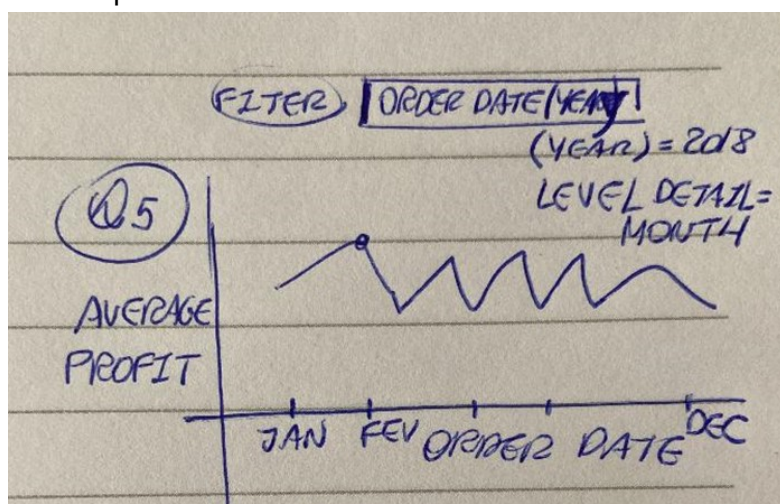 FILTER ORDER DATE (YEAR)
(YEAR) = 2018
Q5
LEVEL DETAIL =
MONTH
AVERAGE
PROFIT
JAN FEV ORDER DATE DEC